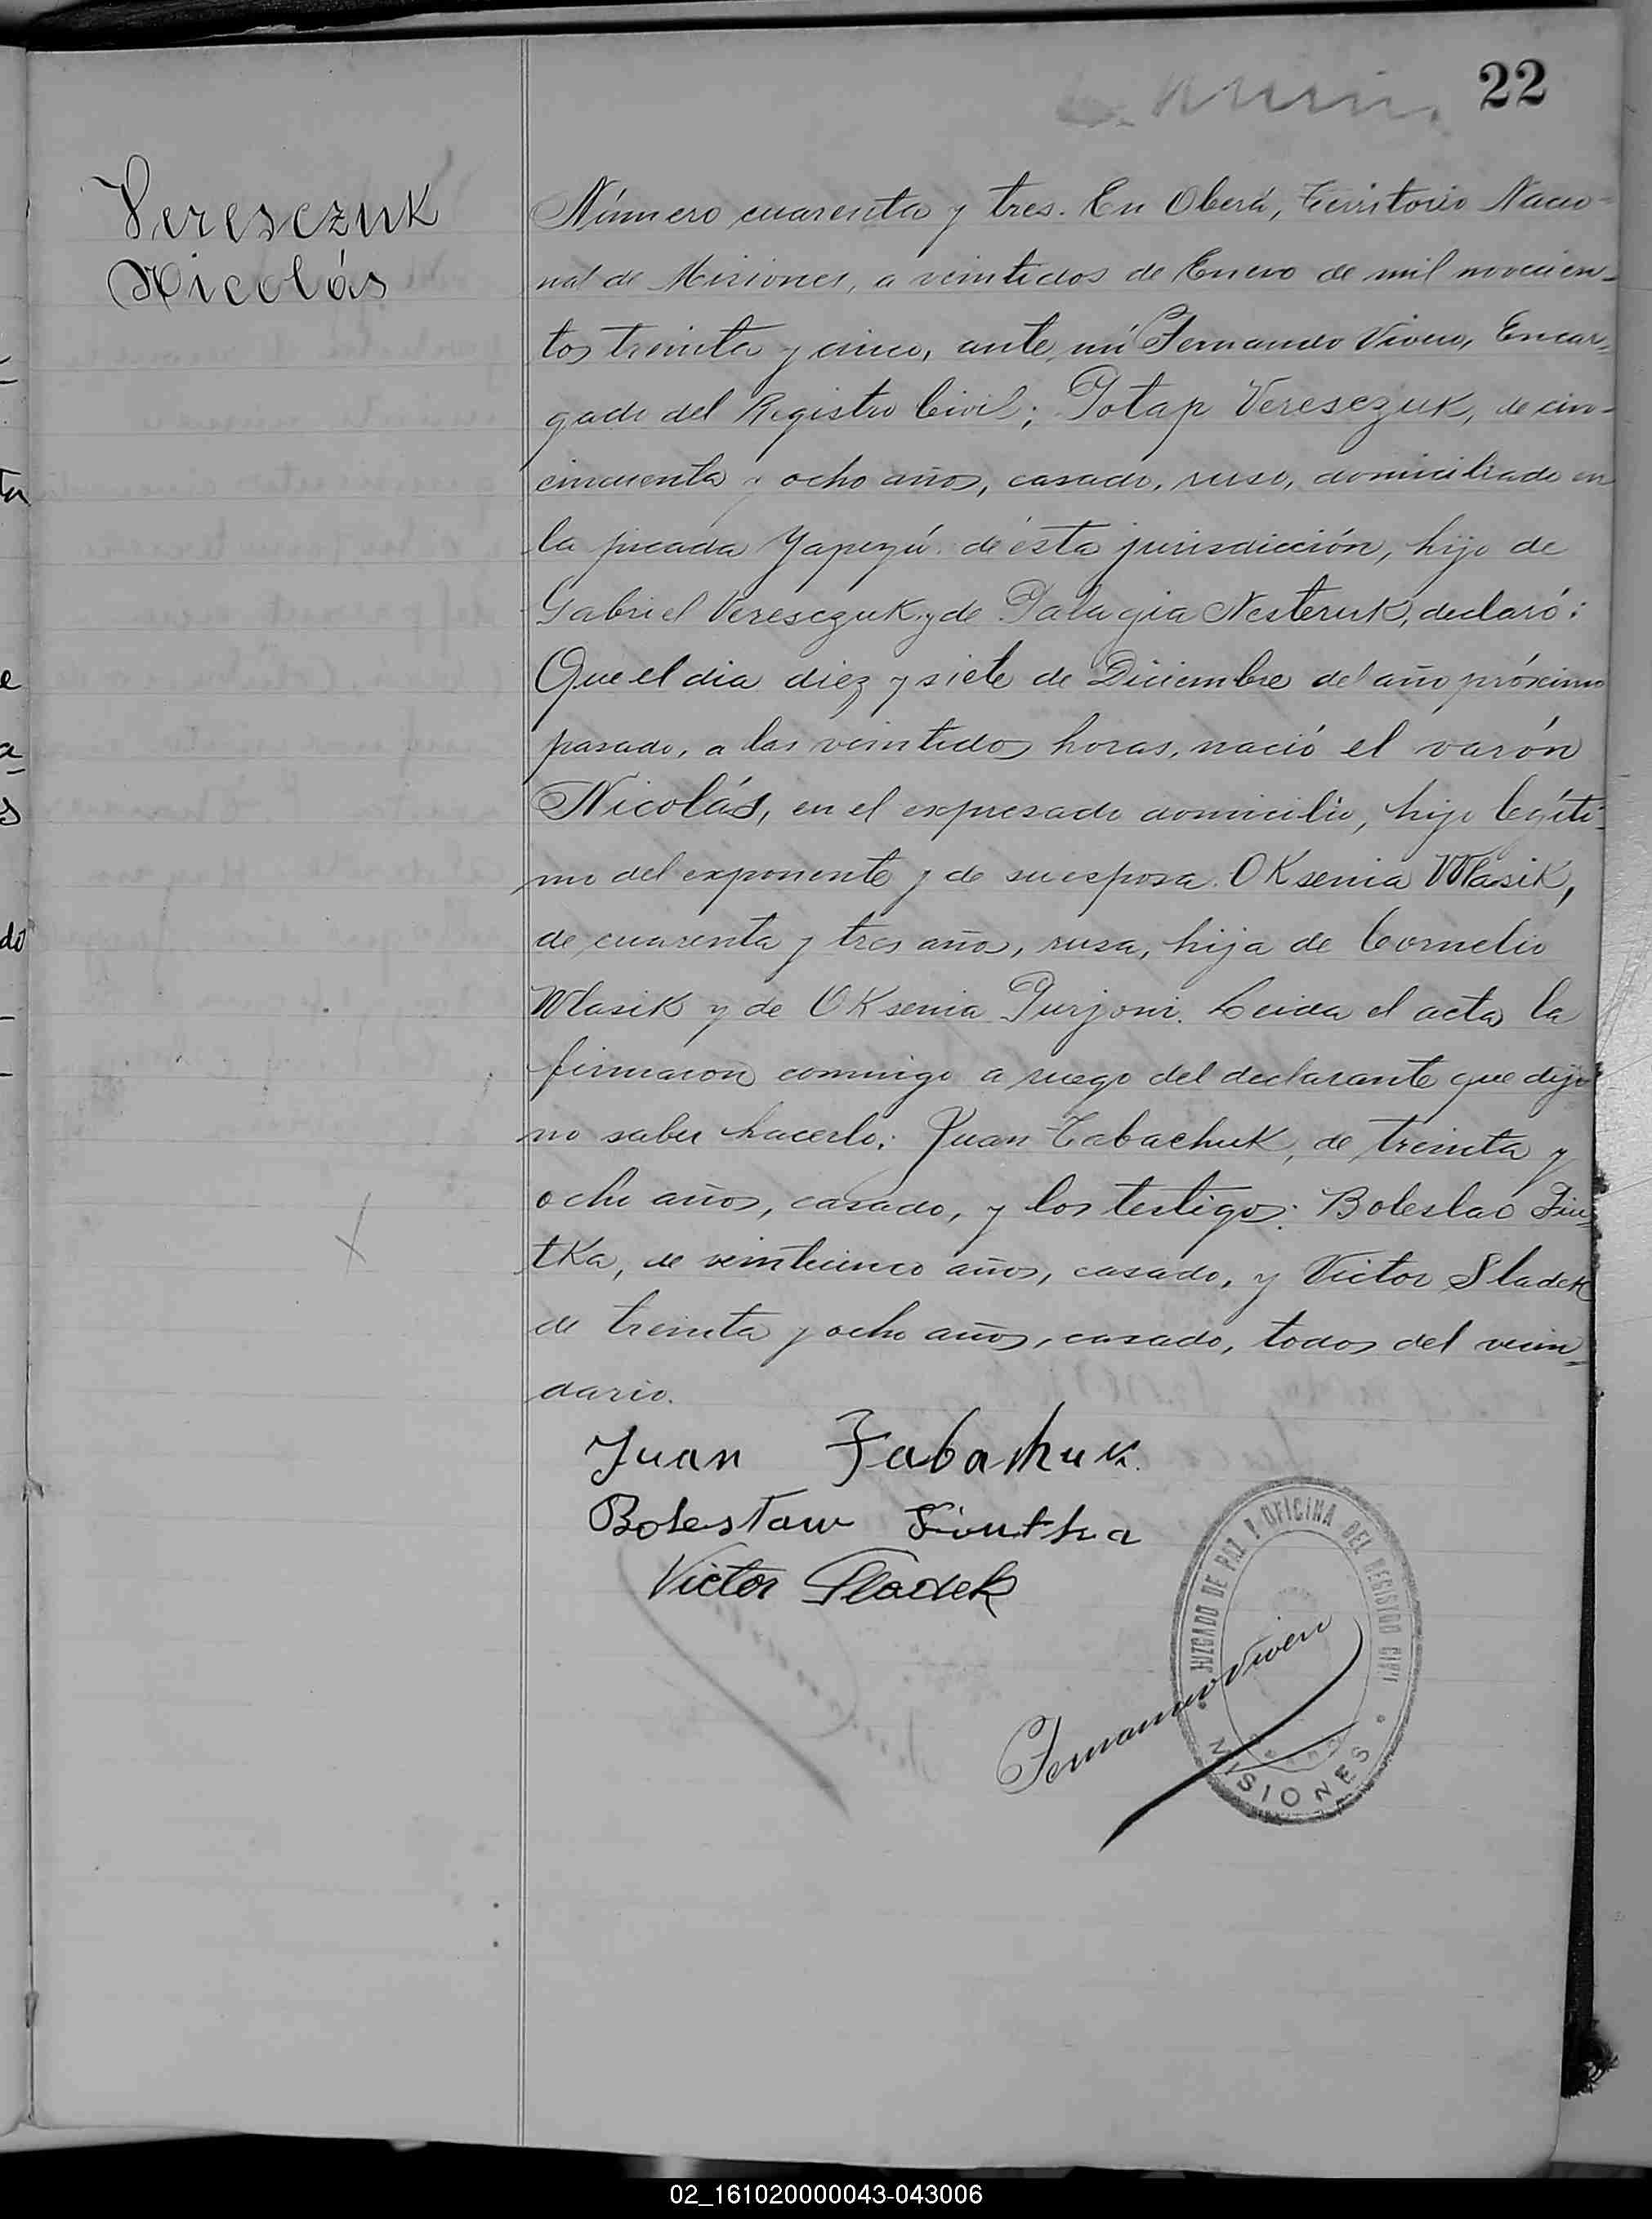 22
Veresczuk
Nicolás
Número cuarenta y tres. En Oberá, Territorio Nacio-
nal de Misiones, a veintidos de Enero de mil novecien-
tos treinta y cinco, ante mí Fernando Vivero, Encar-
gado del Registro Civil; Potap Veresczuk, de cin-
cincuenta y ocho años, casado, ruso, domiciliado en
la picada Yapeyú de ésta jurisdicción, hijo de
Gabriel Veresczuk y de Palagia Nesteruk, declaró:
Que el dia diez y siete de Diciembre del año próximo
pasado, a las veintidos horas, nació el varón
Nicolás, en el expresado domicilio, hijo legíti-
mo del exponente y de su esposa Oksenia Wlasik,
de cuarenta y tres años, rusa, hija de Cornelio
Wlasik y de Oksenia Purjoni. Leida el acta la
firmaron conmigo a ruego del declarante que dijo
no saber hacerlo: Juan Tabachuk, de treinta y
ocho años, casado, y los testigos: Boleslao Fiu-
tka, de veinticinco años, casado, y Victor Sladek
de treinta y ocho años, casado, todos del vecin-
dario.
Juan Tabachuk.
Bolesław Fiutka
Victor Sladek
Fernando Vivero
JUZGADO DE PAZ Y OFICINA DEL REGISTRO CIVIL
MISIONES
02_161020000043-043006